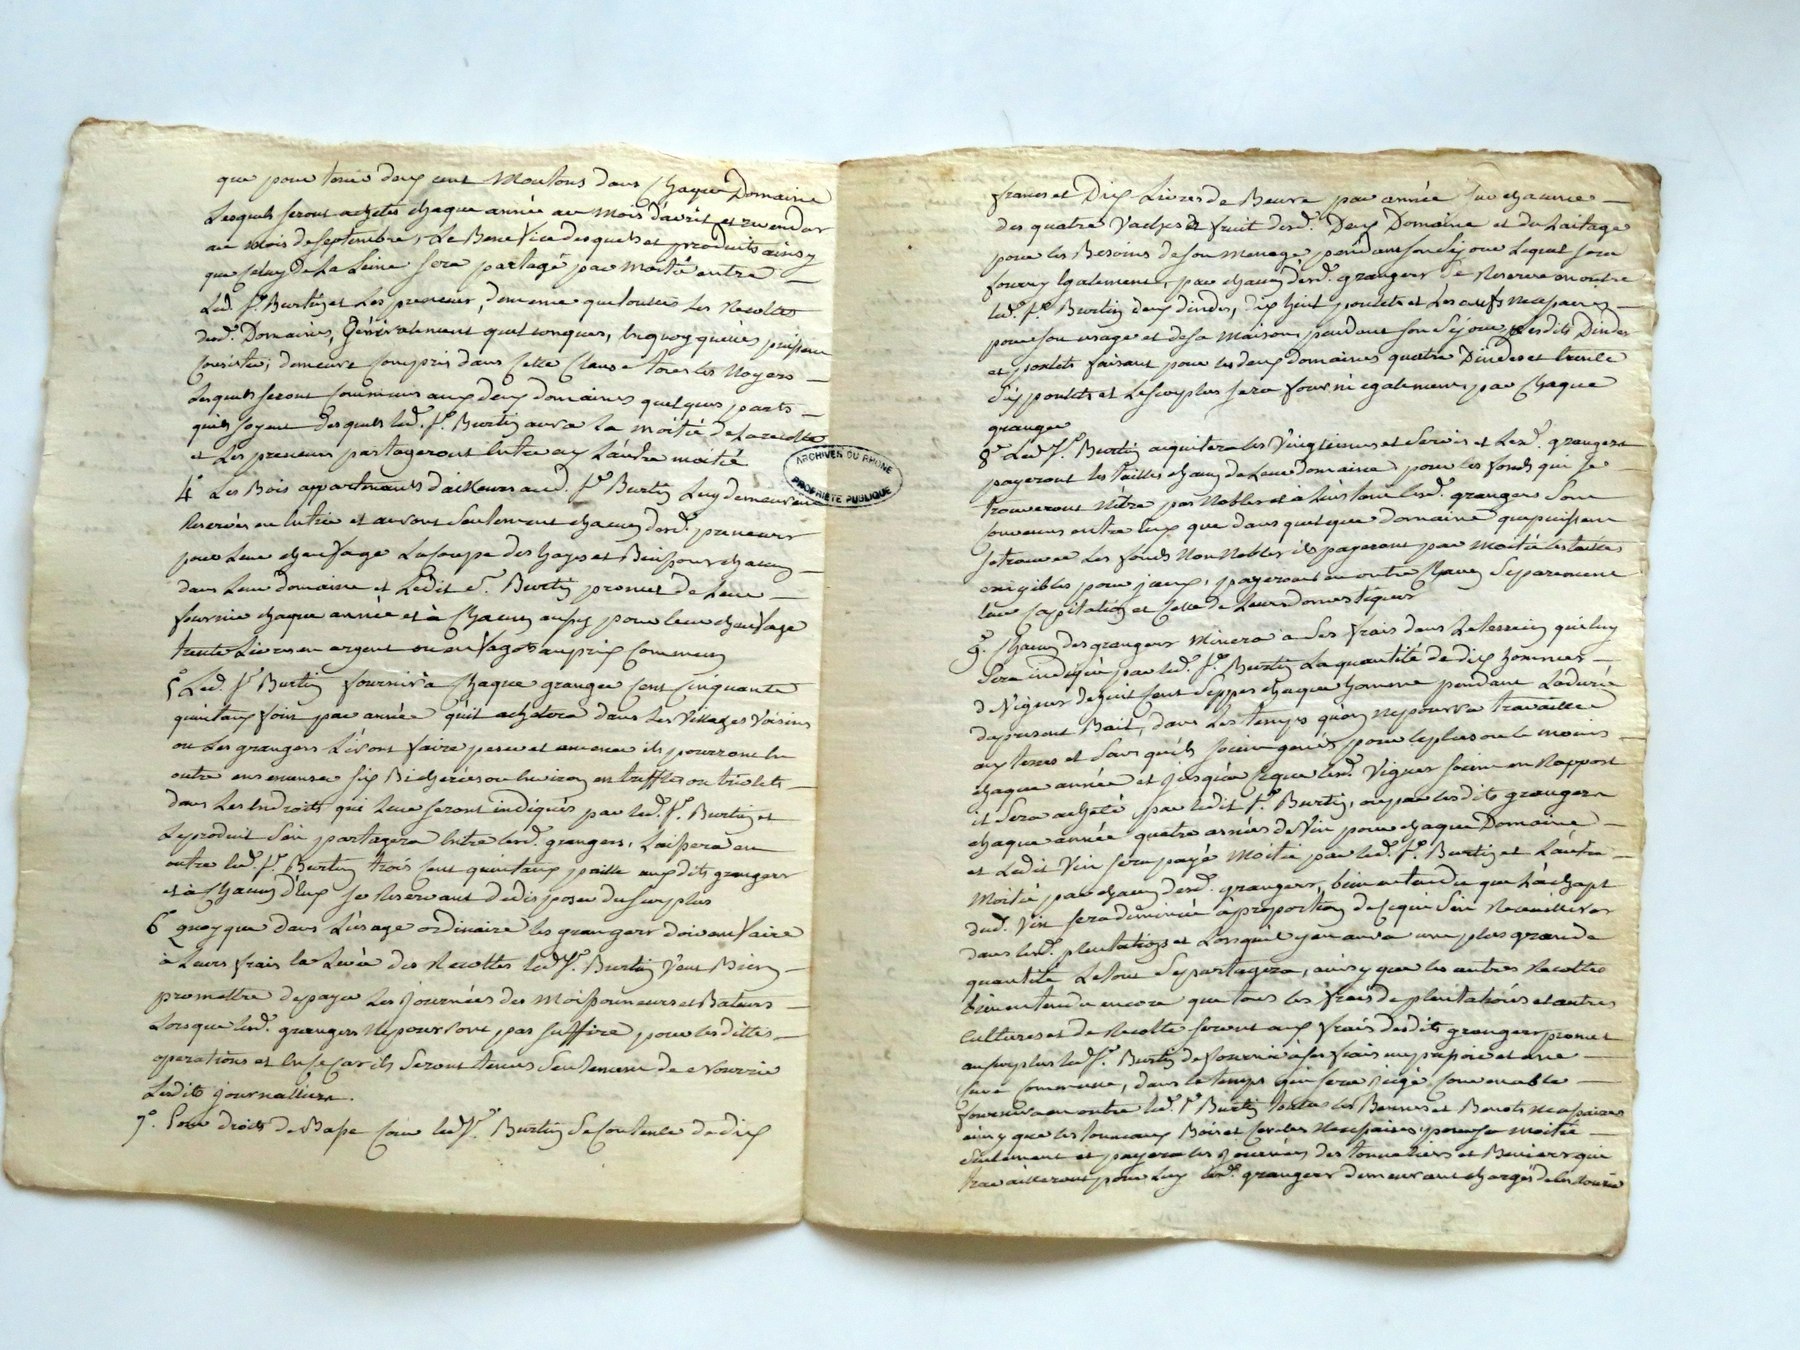 que pour tenir deux cent Moutons dans Chaque Domaine
Lesquels seront achetés chaque année au Mois d'avril et revendus
au mois de septembre, Le Benefice desquels et produits ainsy
que celuy de La Leine sera partagé par moitié entre
Led. Sr. Burtin et Les preneurs, de meme que toutes Les Recoltes
desd. Domaines, Generalement quelconques, en quoy quelles puissent
Consister, demeure Compris dans Cette Clause tous les Noyers
Lesquels seront Communs aux deux domaines quelques parts
quils soyent desquels led. Sr. Burtin aura La moitié de La recolte
et Les preneurs partageront Entre eux L'autre moitié
4° Les Bois appartenants d'ailleurs aud. Sr. Burtin Luy demeurent
Reservés en Entier et auront seulement chacun desd. preneurs
pour Leur chaufage La Coupe des hayes et Buissons chacun
dans Leur domaine et Ledit Sr. Burtin promet de Leur
fournir chaque année et à Chacun aussy pour leur chaufage
trente Livres en argent ou en fagots au prix Commun
5° Led. Sr. Burtin fournira à Chaque granger Cent Cinquante
quintaux foin par année qu'il achetera dans Les Villages Voisins
ou Les grangers L'iront faire peser et amener ils pourront en
outre ensemencer six Bicherées ou Environ en truffles ou triolets
dans Les Endroits qui Leur seront indiqués par led. Sr. Burtin et
Le produit s'en partagera Entre lesd. grangers, Laissera en
outre led. Sr. Burtin trois Cent quintaux paille auxdits grangers
et à Chacun d'Eux se Reservant de disposer du surplus
6° Quoyque dans L'usage ordinaire les grangers doivent faire
à Leurs frais la Levée des Recoltes led. Sr. Burtin Veut Bien
promettre de payer Les journées des Moissonneurs et Bateurs
Lorsque lesd. grangers ne pourront pas suffire pour lesdittes
operations et En ce Cas ils seront tenus seulement de Nourrir
Lesdits journalliers.
7°. Pour droits de Basse Cour led. Sr. Burtin se Contente de dix
ARCHIVES DU RHONE
PROPRIÉTÉ PUBLIQUE
francs et Dix Livres de Beurre par année sur chacune
des quatre Vaches et fruit desd. Deux Domaine et du Laitage
pour les Besoins de son Menage pendant son sejour Lequel sera
fourny Egalement, par chacun desd. grangers se Reserve en outre
led. Sr. Burtin deux dindes, dix huit poulets et Les oeufs necessaires
pour son usage et de sa Maison pendant son sejour Lesdits Dindes
et poulets faisant pour les deux domaines quatre Dindes et trente
six poulets et Le surplus sera fourni egalement par Chaque
granger
8° Led. Sr. Burtin aquitera les Vingtiemes et servis et Lesd. grangers
payeront les tailles chacun de Leur domaine pour les fonds qui se
trouveront N'etre pas Nobles et à Cet
convenus entre Eux que dans quelque domaine que puissent
se trouver Les fonds Non Nobles ils payeront par moitié les tailles
exigibles pour iceux, payeront en outre Chacun Separement
Leur Capitation et Celle de Leurs domestiques
9°. Chacun des grangers Minera à ses frais dans Le terrein qui Luy
sera indiqué par led. Sr. Burtin La quantité de dix hommes
de Vignes de huit Cent Seppes chaque homme pendant La durée
du present Bail, dans Les temps quon ne pourra travailler
aux terres et sans qu'ils soient genés pour le plus ou le moins
chaque année et jusqu'à Ce que lesd. Vignes soient en Rapport
il sera acheté par ledit Sr. Burtin, ou par lesdits grangers
chaque année quatre anées de Vin pour chaque Domaine
et Ledit Vin sera payé Moitié par led. Sr. Burtin et L'autre
Moitié par chacun desd. grangers, bien entendu que L'achapt
dud. Vin sera diminué à proportion de Ce qui s'en Recueillera
dans lesd. plantations et Lorsquil y en aura une plus grande
quantité Le tout se partagera, ainsy que les autres Recoltes
bien entendu encore que tous les frais de plantations et autres
Cultures et de Recolte seront aux frais desdits grangers promet
au surplus led. Sr. Burtin de fournir à ses frais une et une
Cuve Commune, dans le temps qui sera jugé convenable
fournira en outre led. Sr. Burtin toutes les Bennes et Benots necessaires
ainsy que les tonneaux Bois et Cercles Necessaires pour sa moitié
seulement et payera les journées des tonneliers et Benniers qui
travailleront pour Luy lesd. grangers demeurant chargés de les nourir